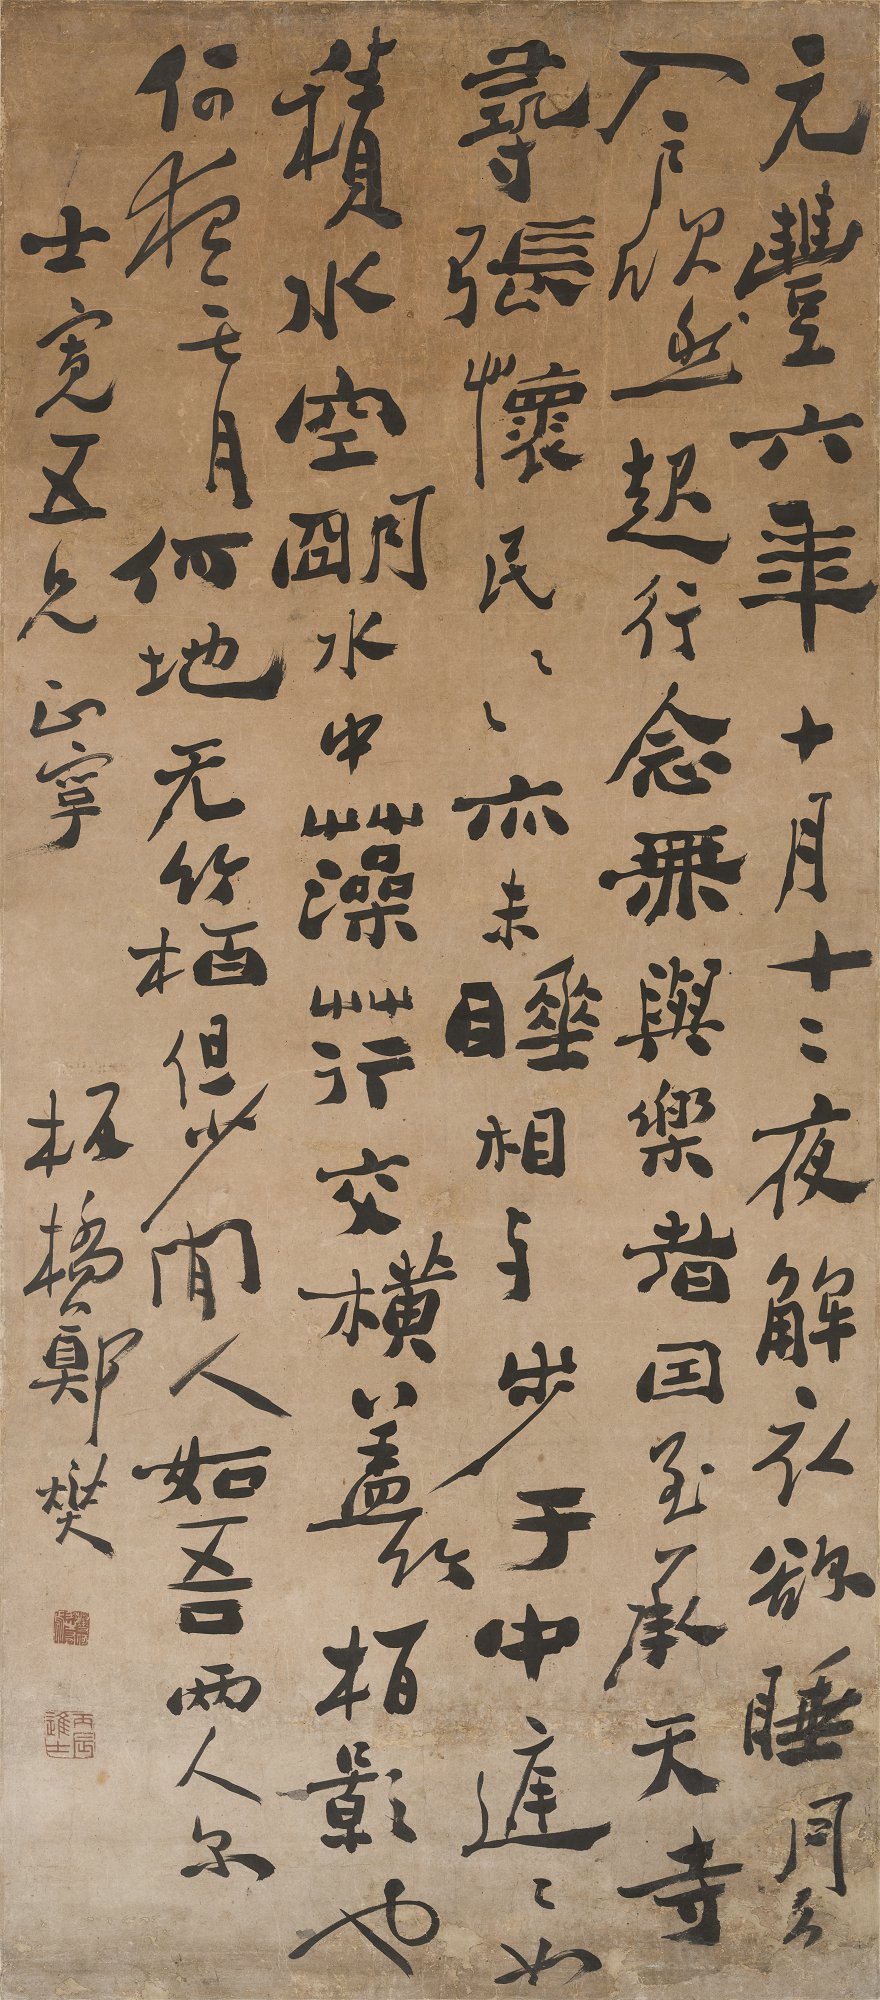 元豐六年十月十二夜解衣欲睡月色
入户欣然起行念無與樂者囙至承天寺
尋張懷民〻〻亦未睡相与步于中庭〻如
積水空明水中藻荇交橫蓋竹栢影也
何夜无月何地无竹栢但少閒人如吾兩人尔
士寬五兄正
板橋鄭燮
丙辰進士